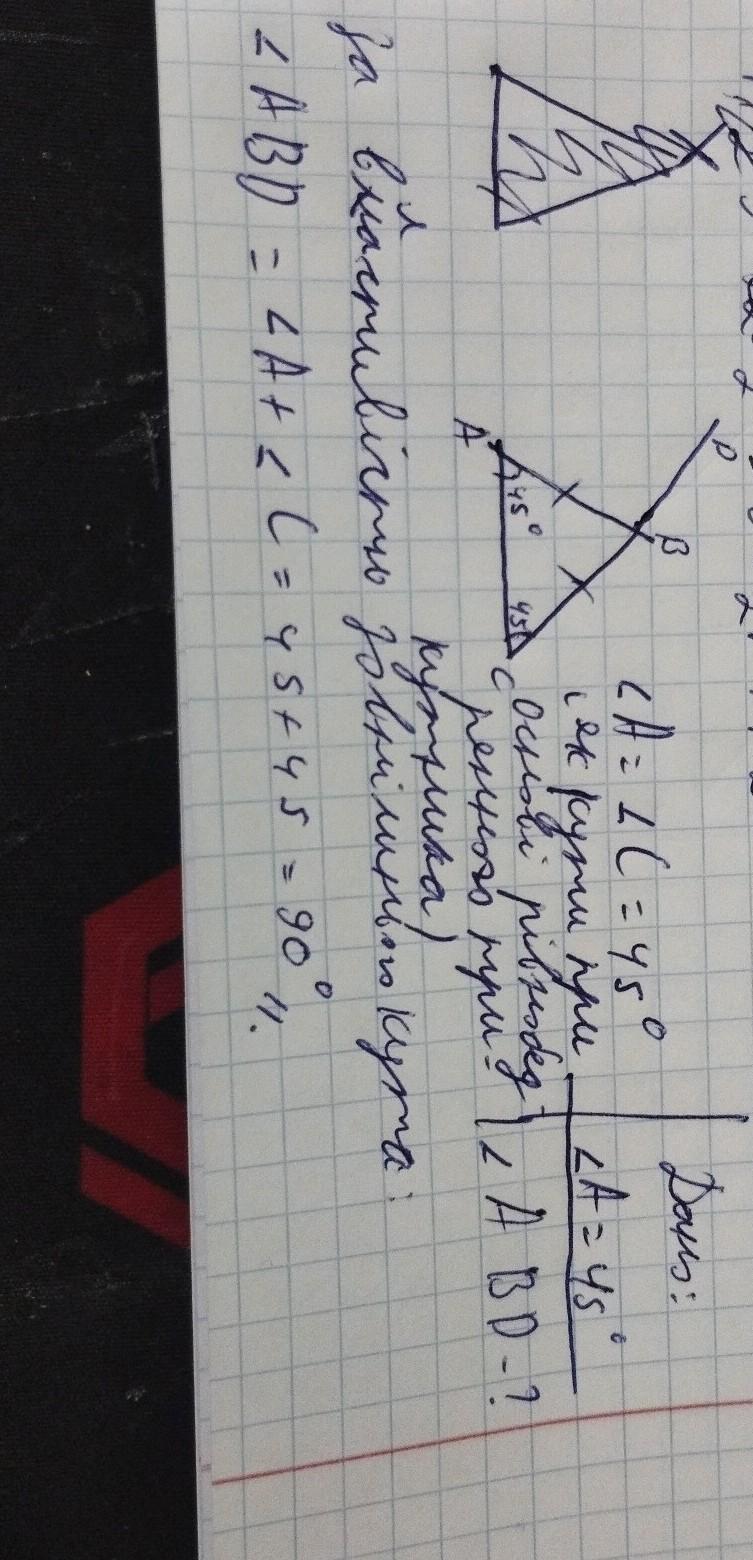 Дано:
∠A = 45°
∠ABD - ?
∠A = ∠C = 45°
(як кути при
основі рівнобед-
реного три-
кутника)
D
B
A
45°
45°
C
За властивістю зовнішнього кута:
∠ABD = ∠A + ∠C = 45 + 45 = 90°.